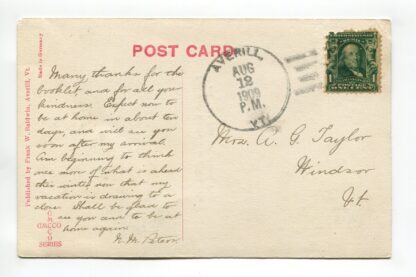 POST CARD
Made in Germany
Published by Frank W. Baldwin, Averill, Vt.
G M
GMCCO
C O
SERIES
AVERILL,
AUG
12
1909
P.M.
VT.
1
Many thanks for the
booklet and for all your
kindness. Expect now to
be at home in about ten
days, and will see you
soon after my arrival.
Am beginning to think
one more of what is ahead
this winter now that my
vacation is drawing to a
close. Shall be glad to
see you and to be at
home again.
Mrs. A. G. Taylor
Windsor
Vt.